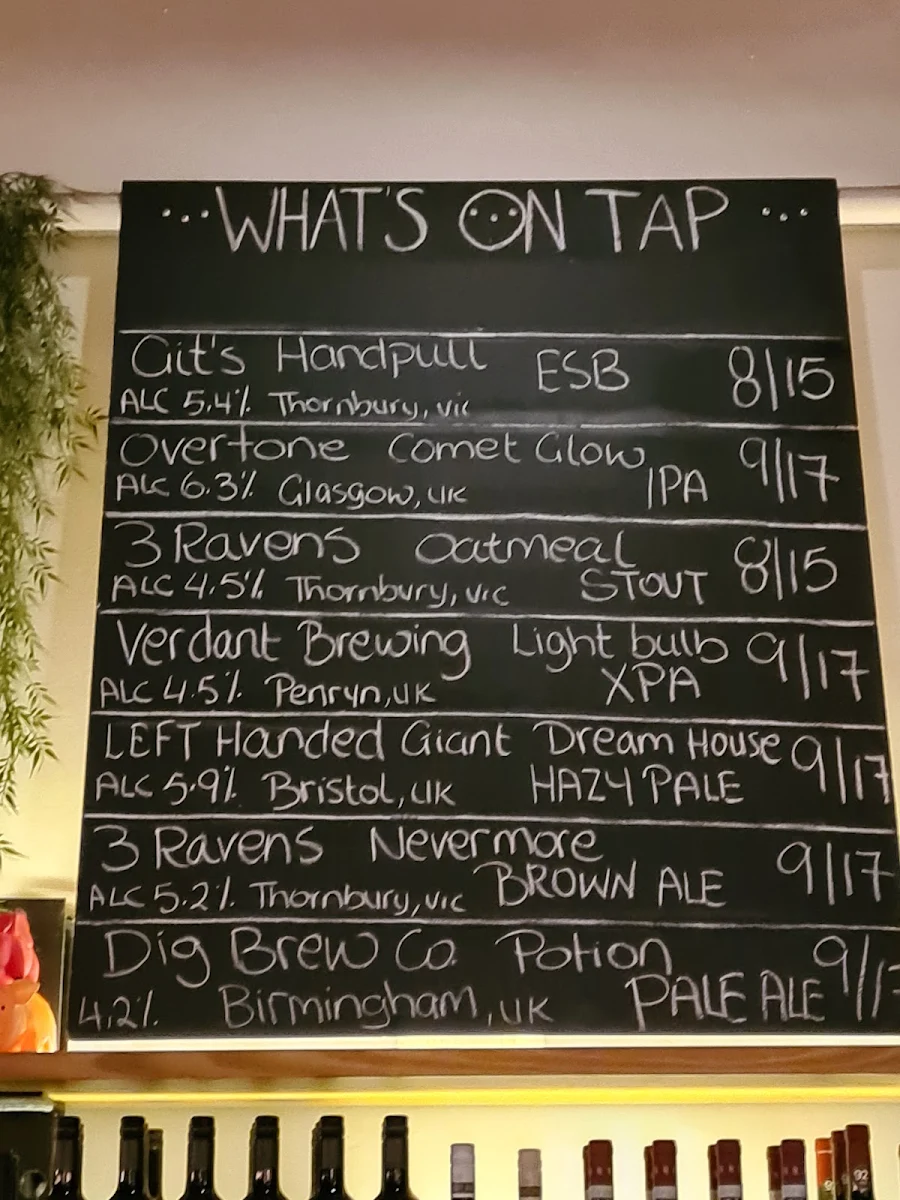 ...WHAT'S ON TAP...
Git's Handpull ESB 8/15
ALC 5.4% Thornbury, Vic
Overtone Comet Glow 9/17
ALC 6.3% Glasgow, UK IPA
3 Ravens Oatmeal 8/15
ALC 4.5% Thornbury, Vic STOUT
Verdant Brewing Light bulb 9/17
ALC 4.5% Penryn, UK XPA
LEFT Handed Giant Dream House 9/17
ALC 5.9% Bristol, UK HAZY PALE
3 Ravens Nevermore 9/17
ALC 5.2% Thornbury, Vic BROWN ALE
Dig Brew Co. Potion 9/1
4.2% Birmingham, UK PALE ALE
92